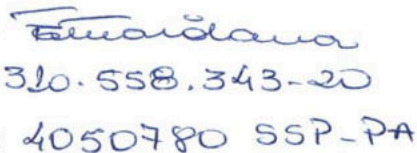 310.558.343-20
4050780 SSP-PA